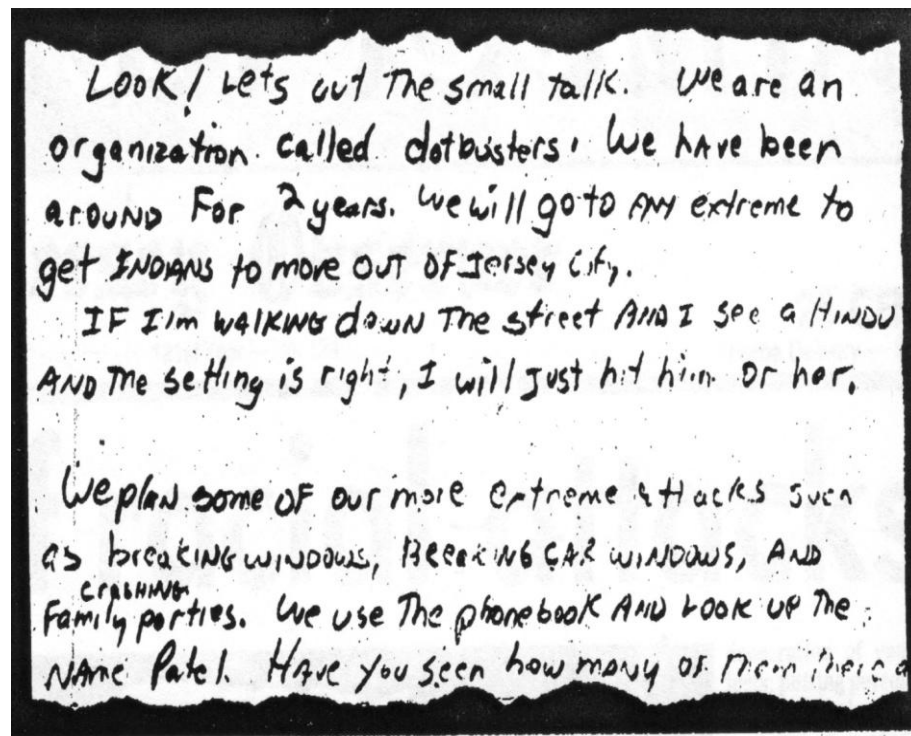 LOOK! Lets cut The small talk. We are an
organization called dotbusters. We have been
aroUND For 2 years. We will go to ANY extreme to
get INDIANS to move OUT OF Jersey City.
IF I'm WALKING down The street AND I see a HINDU
AND The setting is right, I will Just hit him or her.
We plan some OF our more extreme attacks such
as breaking WINDOWS, BREAKING CAR WINDOWS, AND
CRASHING
Family parties. We use The phonebook AND LOOK up The
NAme Patel. HAve You seen how many of Them There a